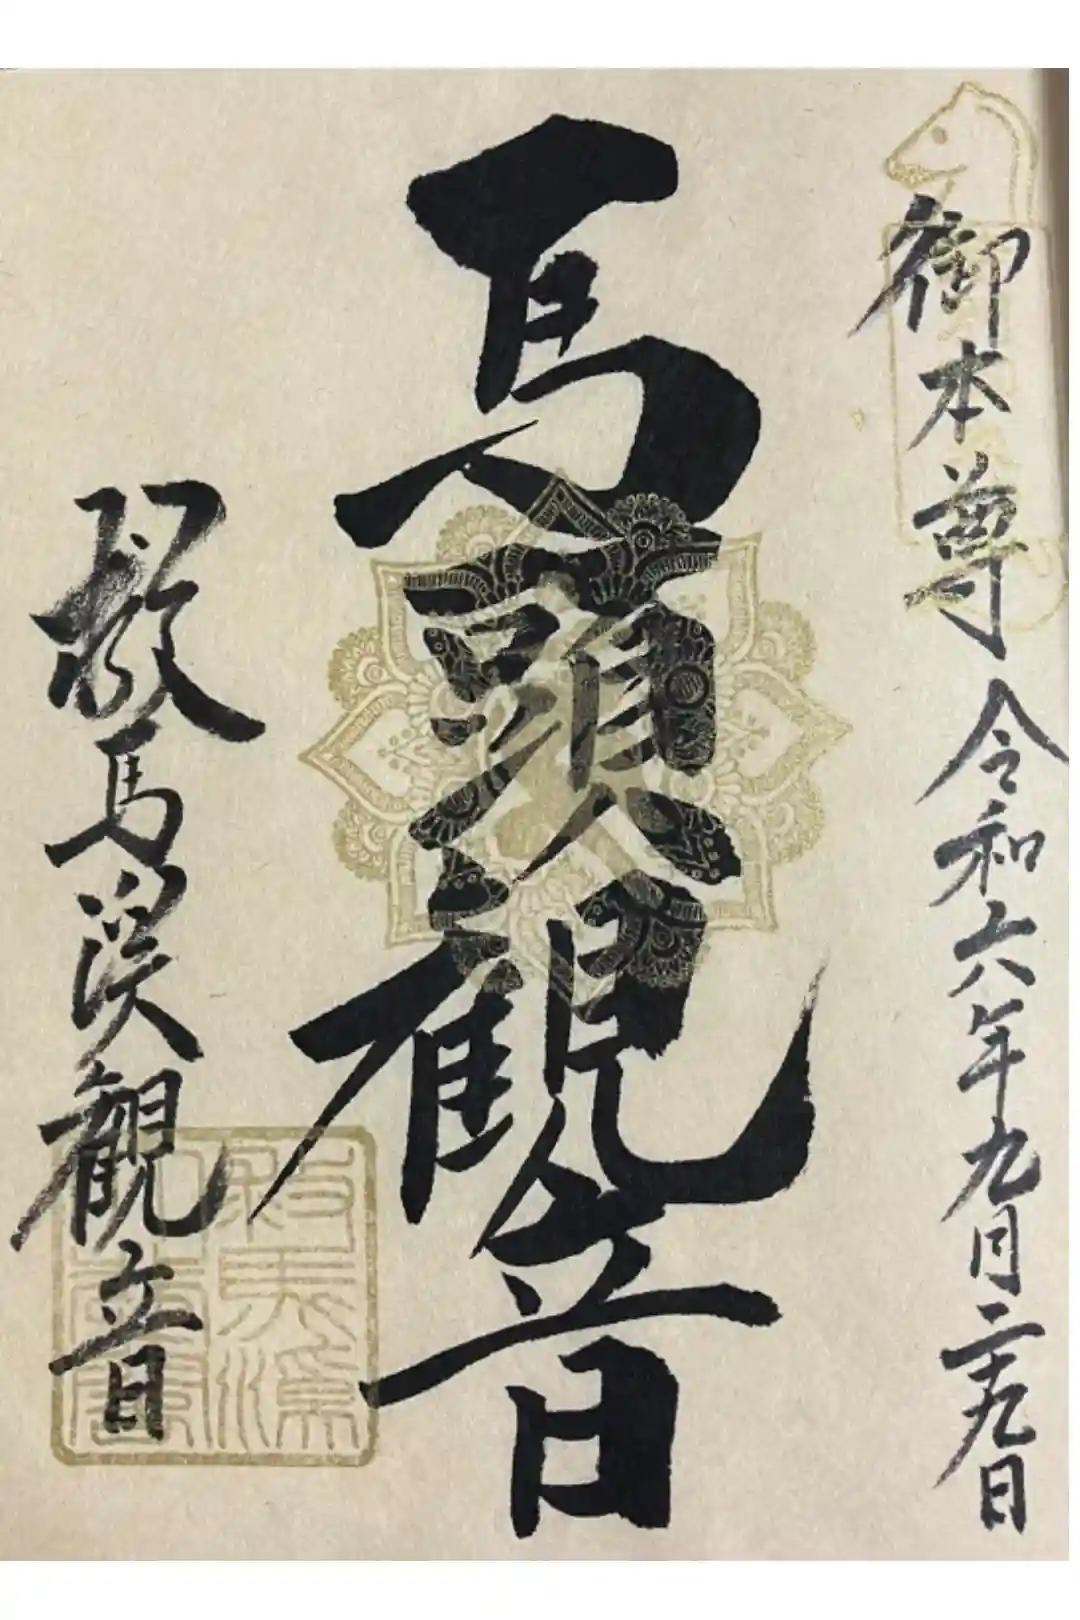 御本尊 令和六年九月二十九日
馬頭観音
救馬渓観音
救馬渓